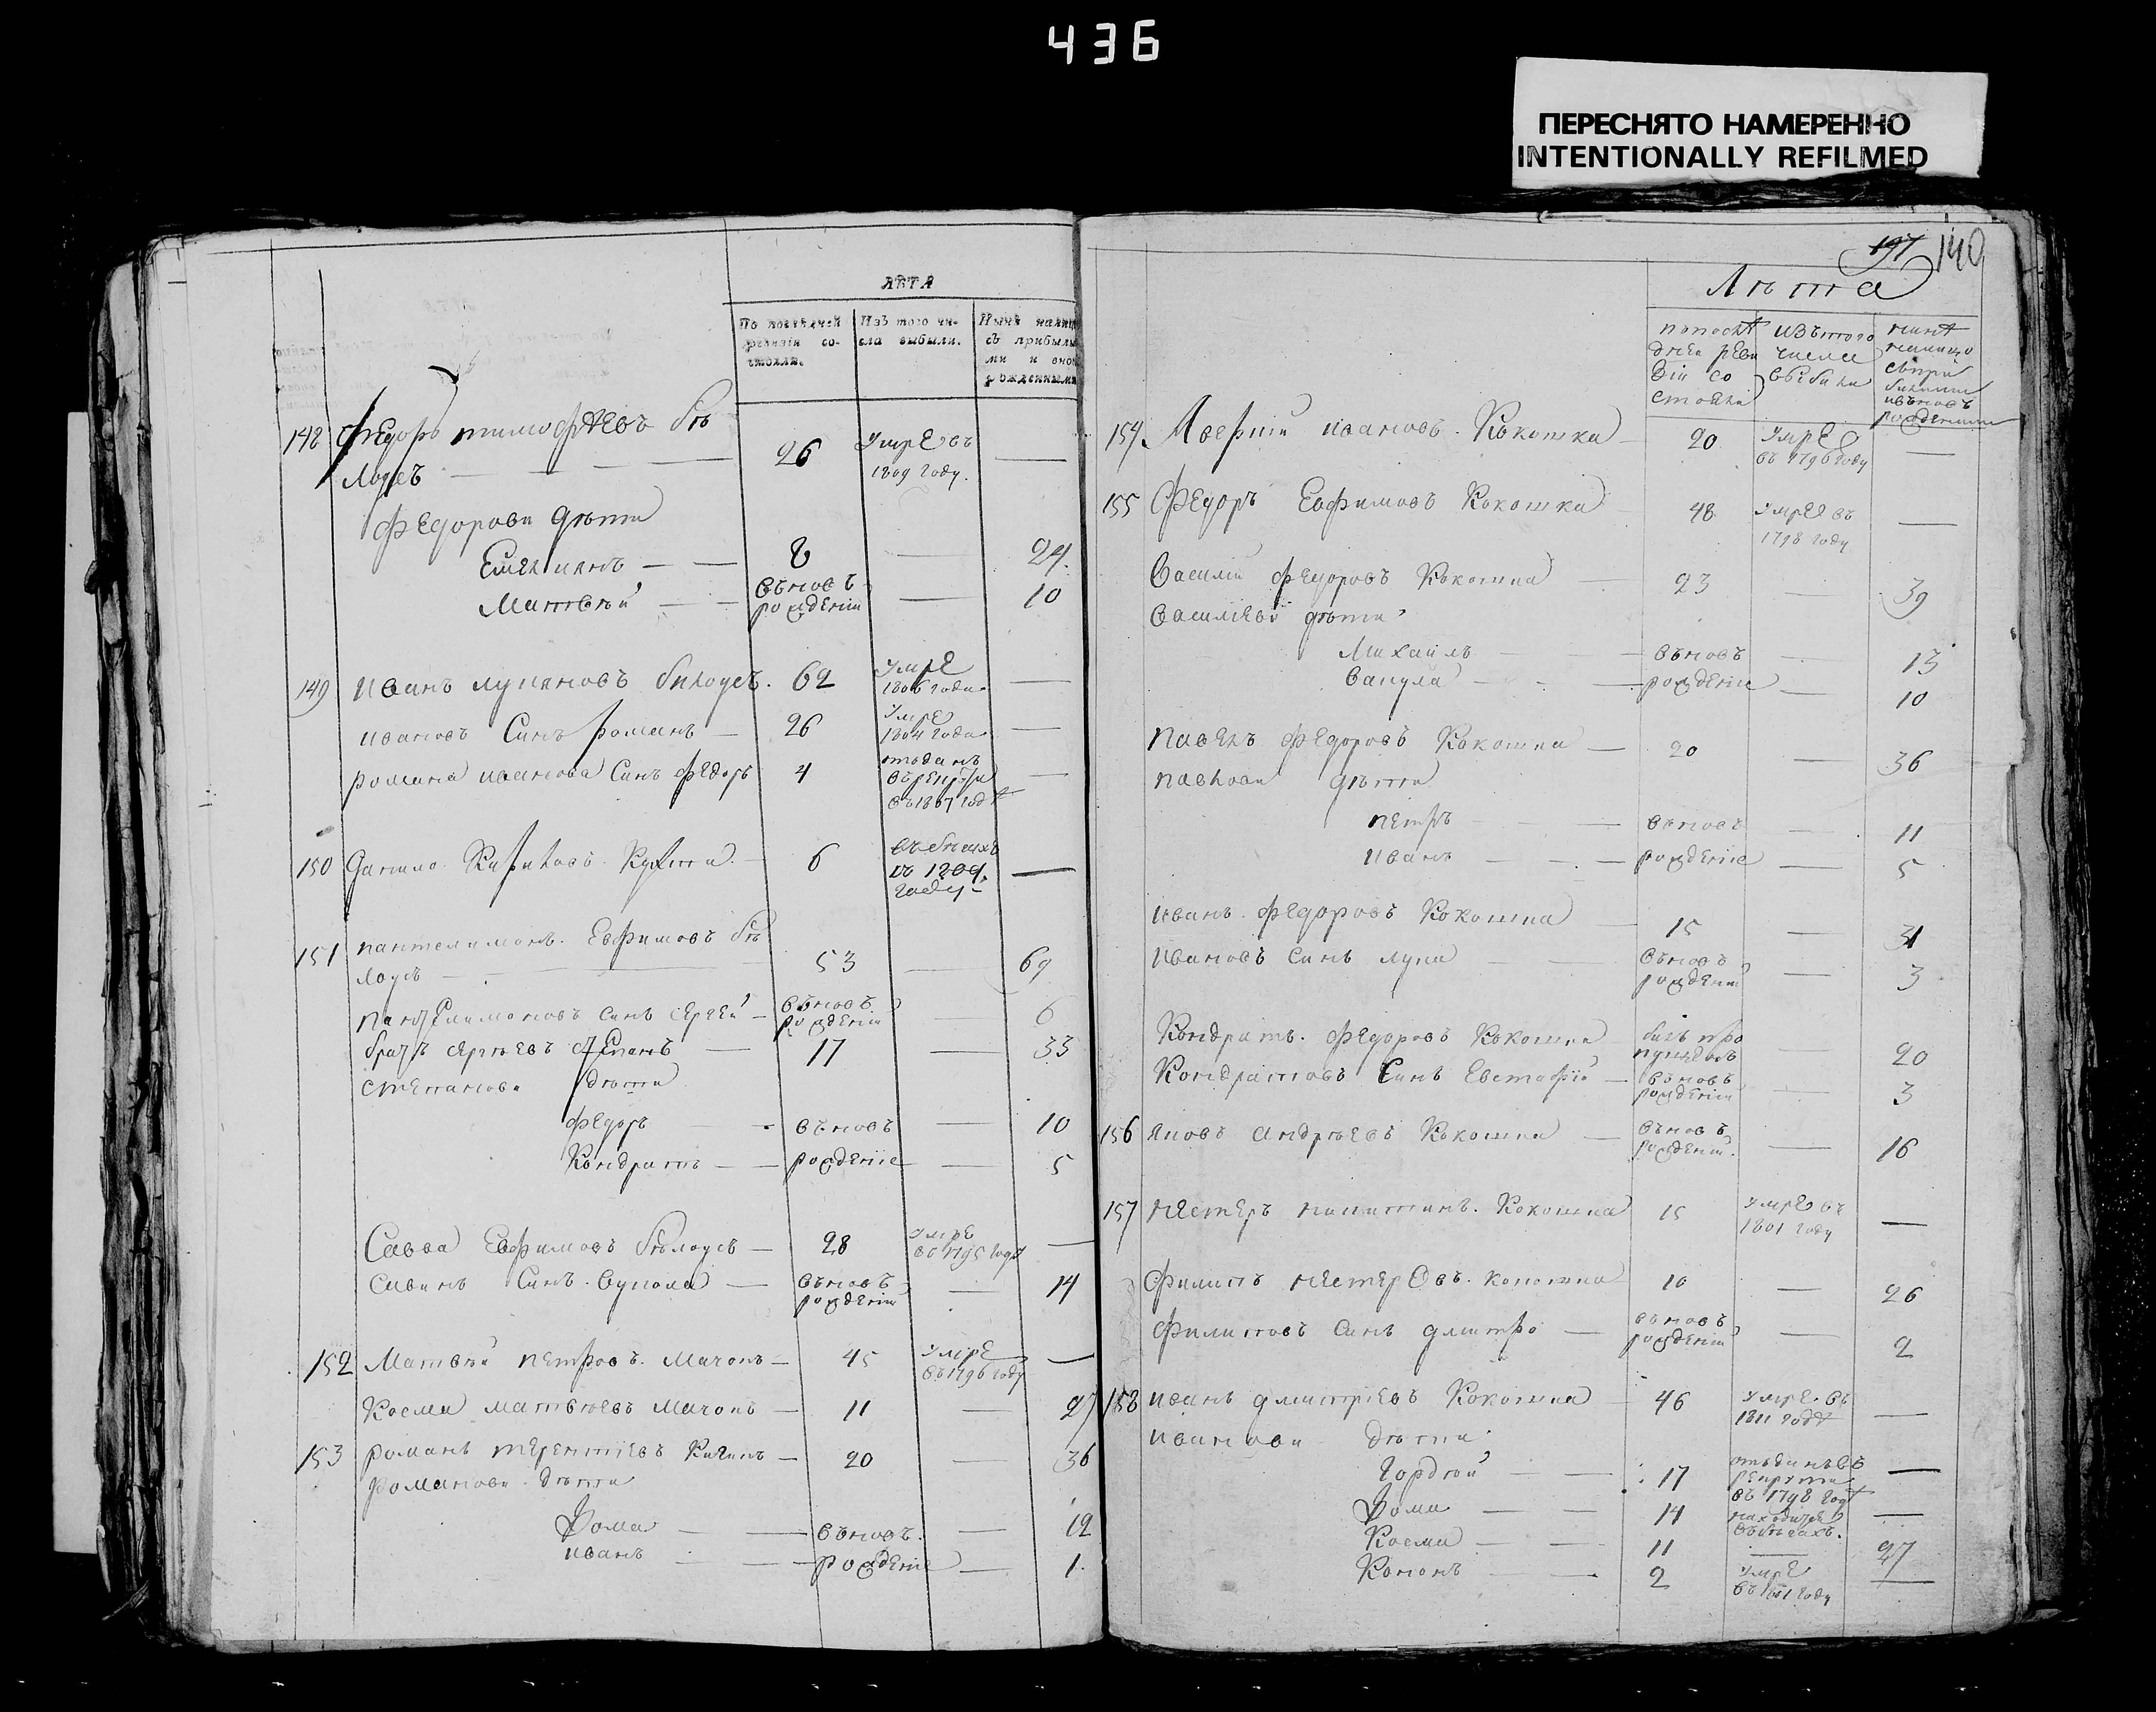 436
ПЕРЕСНЯТО НАМЕРЕННО
INTENTIONALLY REFILMED
ЛѢТА
По последней ревизіи состояли.
Изъ того числа выбыли.
Нынѣ налицо съ прибылыми и вновь рожденными
148 Федоръ тимофѣевъ бѣлоусъ — 26 умре въ 1809 году. —
Федорови дѣти
Емелианъ — 8 — 24.
Матвѣй — вновъ рожденій — 10
149 Иванъ лукяновъ билоусъ. 62 умре 1806 года —
ивановъ Синъ романъ — 26 умре 1804 года —
романа иванова Синъ Федоръ 4 отданъ въ рекрути въ 1807 годѣ —
150 Данило Кириловъ Кухта. — 6 въ бѣгахъ въ 1809. году —
151 пантелимонъ. Евфимовъ бѣлоусъ — 53 — 69
пантелимоновъ синъ сергей — вновъ рожденій — 6
братъ сергѣевъ степанъ — 17 — 33
степанови дѣти
Федоръ — вновъ — 10
Кондратъ — рожденіе — 5
Савва Евфимовъ бѣлоусъ — 28 умре въ 1795 годѣ —
Савинъ Синъ. вукола — вновъ рожденій — 14
152 Матвѣй петровъ. Мачокъ — 45 умре въ 1796 году —
Косма матвѣевъ Мачокъ — 11 — 27
153 романъ терентіевъ — 20 — 36
романови дѣти
Фома — вновъ. — 12
иванъ — рожденіе — 1.
197 140
Лѣта
по последней ревизіи состояли
изъ того числа выбыли
нинѣ налицо съ прибилими и вновъ рожденими
154. Аверкій ивановъ. Кокошка — 20 умре въ 1796 году —
155 Федоръ Евфимовъ Кокошка 48 умре въ 1798 году —
Василій федоровъ Кокошка — 23 — 39
Василіеви дѣти
Михаилъ — вновъ — 13
Вакула — рожденіе — 10
павелъ федоровъ Кокошка — 20 — 36
павлови дѣти
петръ — вновъ — 11
иванъ — рожденіе — 5
иванъ. федоровъ Кокошка — 15 — 31
ивановъ синъ лука — вновъ рожденій — 3
Кондратъ. федоровъ Кокошка билъ пропущенъ 20
Кондратовъ Синъ Евстафій — вновъ рожденій — 3
156 яковъ андрѣевъ Кокошка — вновъ рожденій. — 16
157 нестеръ никитинъ. Кокошка 15 умре въ 1801 году —
Филипъ нестеровъ. кокошка 10 — 26
Филиповъ синъ дмитро — вновъ рожденій — 2
158 иванъ дмитріевъ Кокошка — 46 умре. въ 1811 годѣ —
иванови дѣти
Гордѣй — 17 отданъ въ рекрути въ 1798 годѣ —
Фома — 14 находится въ бѣгахъ. —
Косма — 11 — 27
Кононъ — 2 умре въ 1801 году —